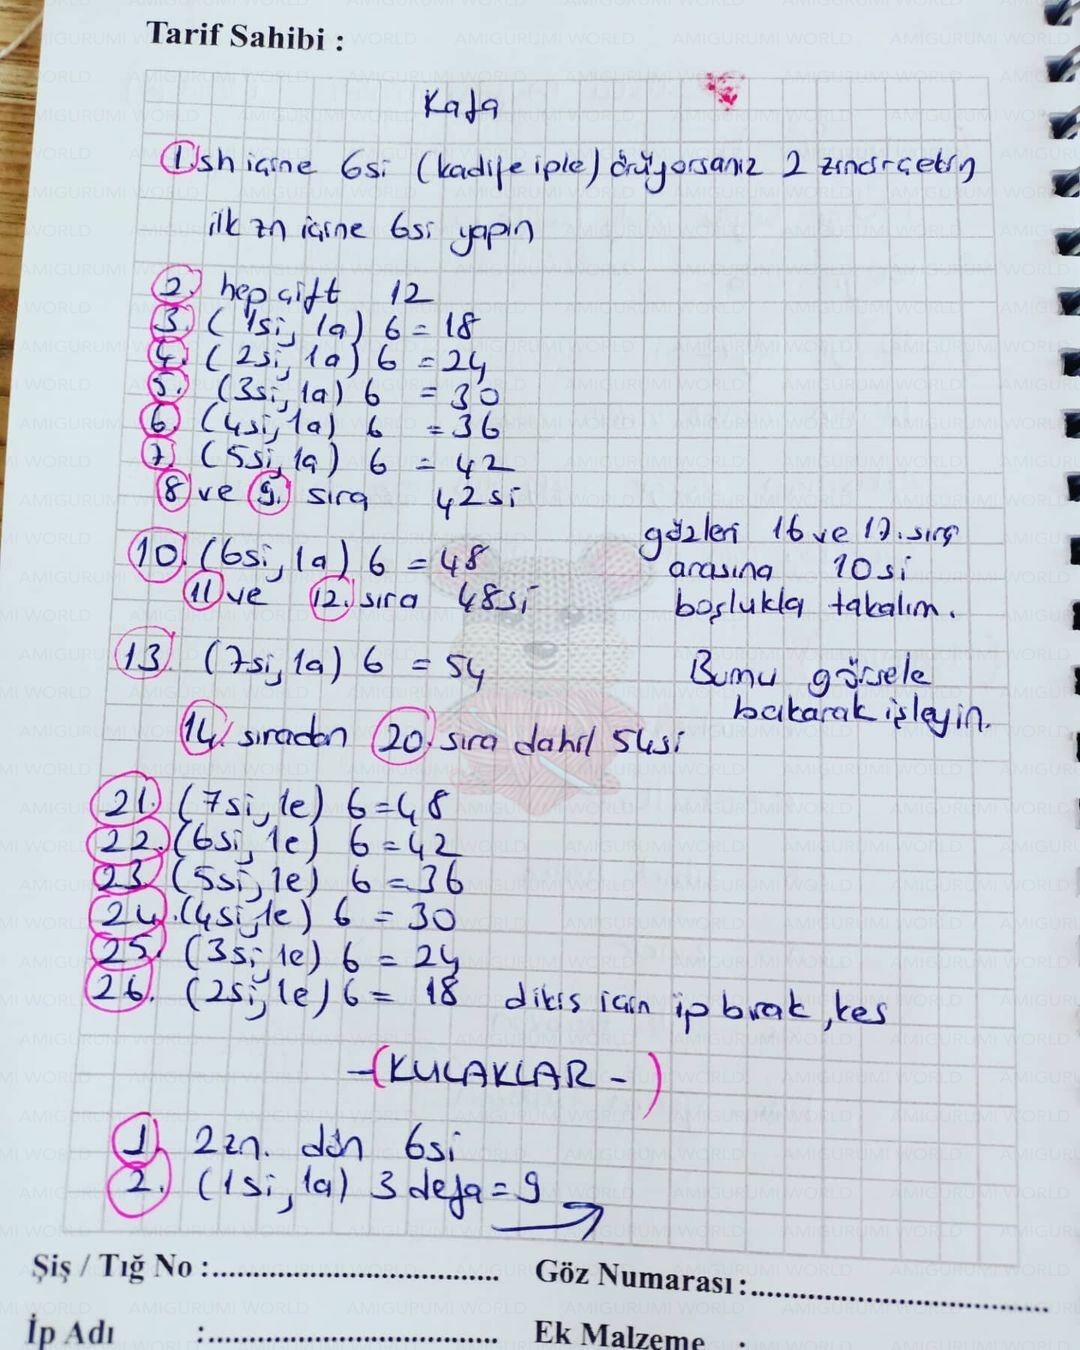 Tarif Sahibi :
Kafa
1. sh içine 6si (kadife iple) örüyorsanız 2 zincir çekin
ilk zn içine 6si yapın
2. hep çift 12
3. (1si, 1a) 6 = 18
4. (2si, 1a) 6 = 24
5. (3si, 1a) 6 = 30
6. (4si, 1a) 6 = 36
7. (5si, 1a) 6 = 42
8 ve 9. sıra 42si
10. (6si, 1a) 6 = 48
11 ve 12. sıra 48si
13. (7si, 1a) 6 = 54
14. sıradan 20. sıra dahil 54si
gözleri 16 ve 17. sıra
arasına 10si
boşlukla takalım.
Burnu görsele
bakarak işleyin.
21. (7si, 1e) 6 = 48
22. (6si, 1e) 6 = 42
23. (5si, 1e) 6 = 36
24. (4si, 1e) 6 = 30
25. (3si, 1e) 6 = 24
26. (2si, 1e) 6 = 18 dikiş için ip bırak, kes
-(KULAKLAR-)
1. 2zn. dön 6si
2. (1si, 1a) 3 defa = 9
Şiş / Tığ No :
Göz Numarası :
İp Adı :
Ek Malzeme :
AMIGURUMI WORLD